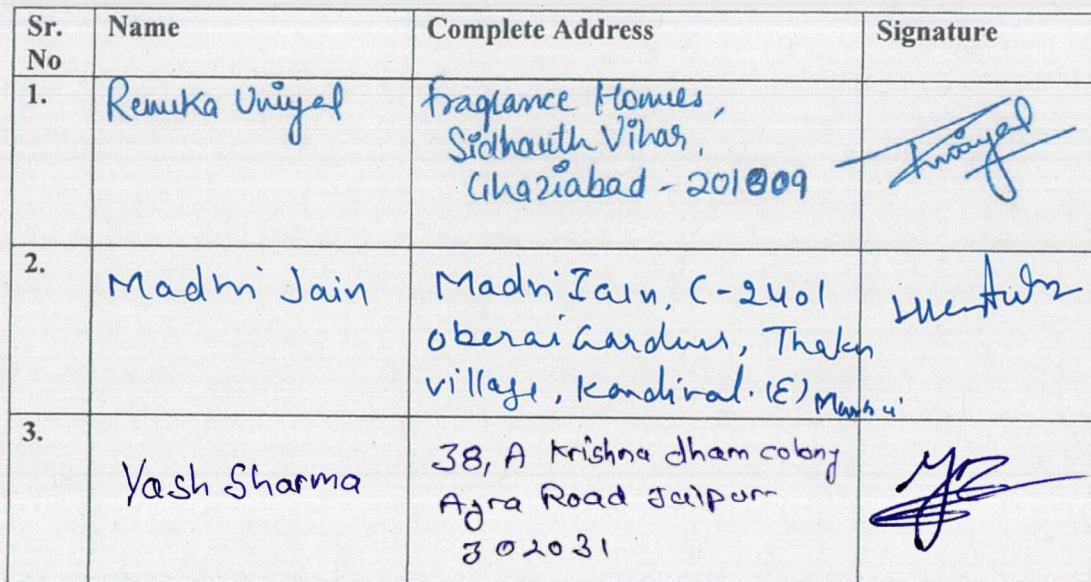 Sr. No Name Complete Address Signature
1. Renuka Uniyal Fragrance Homes,
Sidhauth Vihar,
Ghaziabad - 201009
2. Madhri Jain Madri Jain, C-2401
oberai Gardens, Thakur
village, Kandival. (E) Mumbai
3. Yash Sharma 38, A Krishna dham colony
Agra Road Jaipur
302031